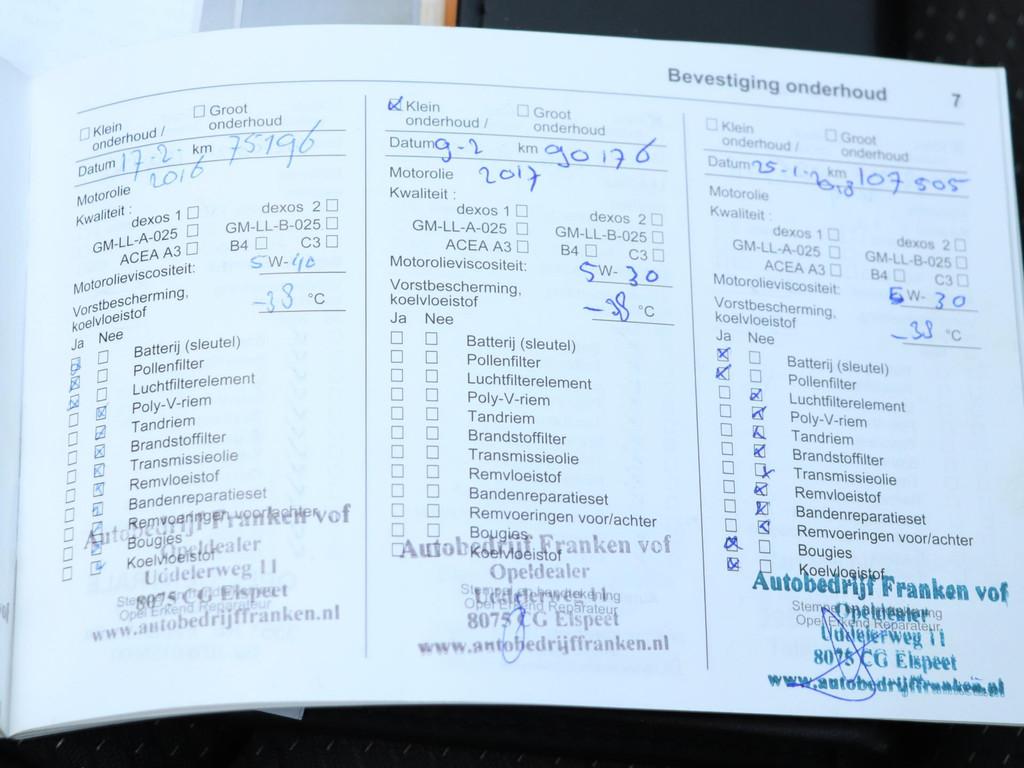 Bevestiging onderhoud 7
Klein onderhoud /
Groot onderhoud
Datum 17-2-2016 km 75196
Motorolie
Kwaliteit :
dexos 1 dexos 2
GM-LL-A-025 GM-LL-B-025
ACEA A3 B4 C3
Motorolieviscositeit: 5W-40
Vorstbescherming,
koelvloeistof -38 °C
Ja Nee
Batterij (sleutel)
Pollenfilter
Luchtfilterelement
Poly-V-riem
Tandriem
Brandstoffilter
Transmissieolie
Remvloeistof
Bandenreparatieset
Remvoeringen voor/achter
Bougies
Koelvloeistof
Autobedrijf Franken vof
Opeldealer
Uddelerweg 11
8075 CG Elspeet
Opel Erkend Reparateur
www.autobedrijffranken.nl
Klein onderhoud /
Groot onderhoud
Datum 9-2 2017 km 90176
Motorolie
Kwaliteit :
dexos 1 dexos 2
GM-LL-A-025 GM-LL-B-025
ACEA A3 B4 C3
Motorolieviscositeit: 5W-30
Vorstbescherming,
koelvloeistof -38 °C
Ja Nee
Batterij (sleutel)
Pollenfilter
Luchtfilterelement
Poly-V-riem
Tandriem
Brandstoffilter
Transmissieolie
Remvloeistof
Bandenreparatieset
Remvoeringen voor/achter
Bougies
Koelvloeistof
Autobedrijf Franken vof
Opeldealer
Uddelerweg 11
Opel Erkend Reparateur
8075 CG Elspeet
www.autobedrijffranken.nl
Klein onderhoud /
Groot onderhoud
Datum 25-1-2018 km 107505
Motorolie
Kwaliteit :
dexos 1 dexos 2
GM-LL-A-025 GM-LL-B-025
ACEA A3 B4 C3
Motorolieviscositeit: 5W-30
Vorstbescherming,
koelvloeistof -38 °C
Ja Nee
Batterij (sleutel)
Pollenfilter
Luchtfilterelement
Poly-V-riem
Tandriem
Brandstoffilter
Transmissieolie
Remvloeistof
Bandenreparatieset
Remvoeringen voor/achter
Bougies
Koelvloeistof
Autobedrijf Franken vof
Opeldealer
Opel Erkend Reparateur
Uddelerweg 11
8075 CG Elspeet
www.autobedrijffranken.nl